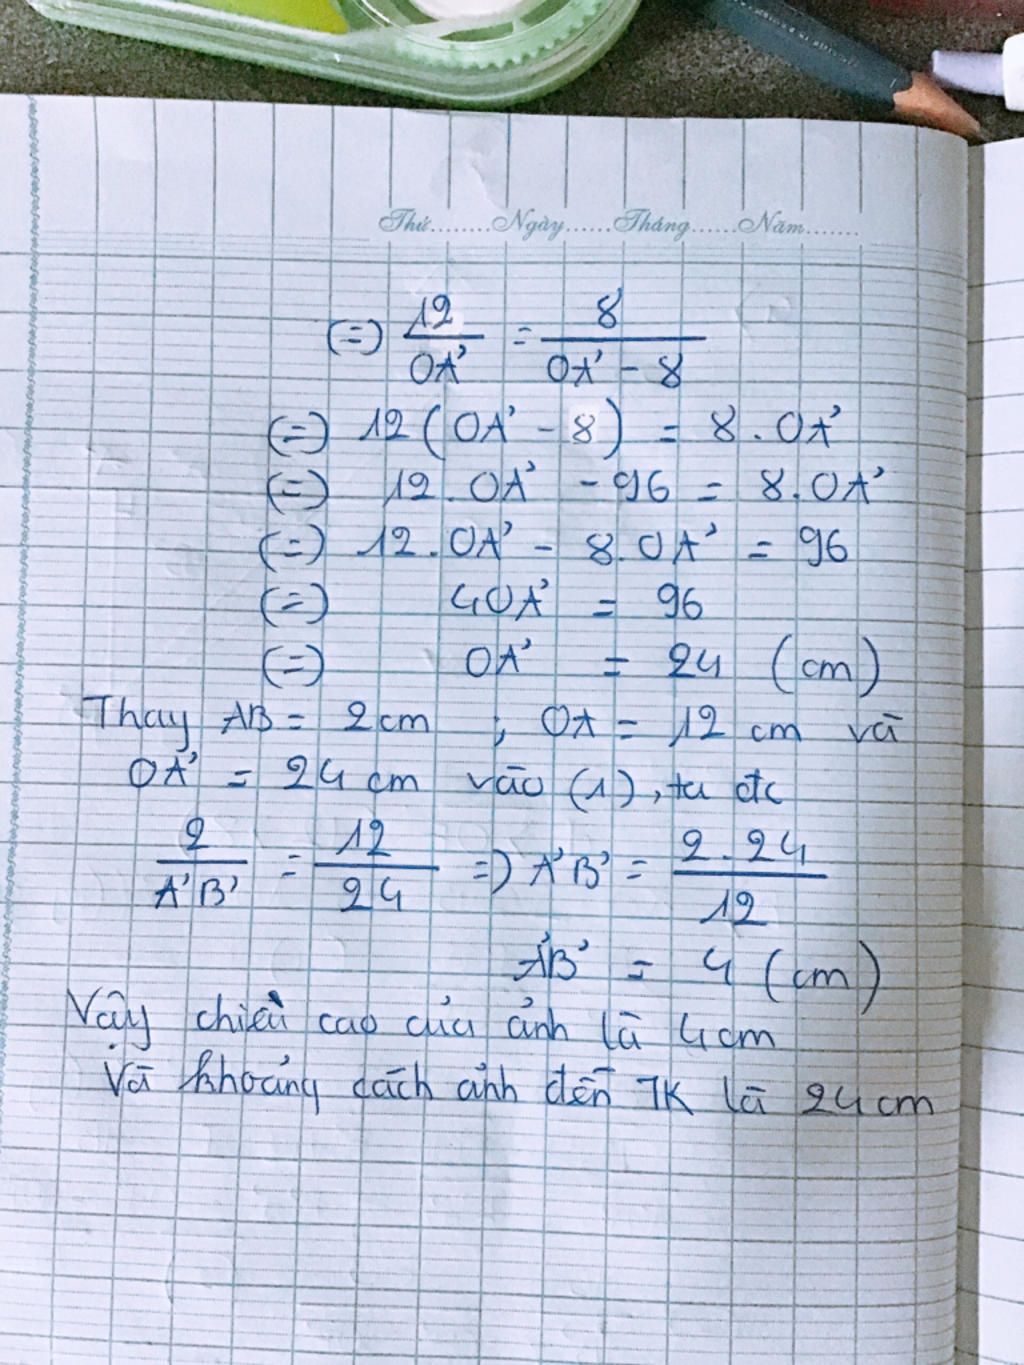 Thứ........Ngày......Tháng......Năm.......
(=) 12/OA' = 8/(OA' - 8)
(=) 12(OA' - 8) = 8.OA'
(=) 12.OA' - 96 = 8.OA'
(=) 12.OA' - 8.OA' = 96
(=) 4OA' = 96
(=) OA' = 24 (cm)
Thay AB = 2cm ; OA = 12 cm và
OA' = 24 cm vào (1), ta đc
2/A'B' = 12/24 =) A'B' = 2.24/12
A'B' = 4 (cm)
Vậy chiều cao của ảnh là 4cm
Và khoảng cách ảnh đến TK là 24cm